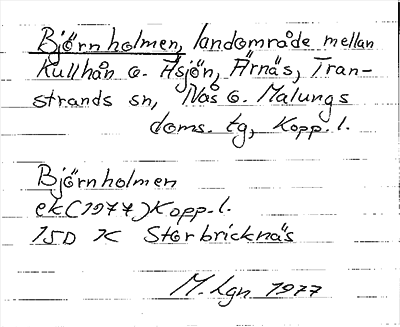 Björnholmen, landområde mellan
Kullhån o. Åsjön, Ärnäs, Tran-
strands sn, Nås o. Malungs
doms. tg, Kopp. l.
Björnholmen
ek (1977) Kopp. l.
15D K Storbricknäs
M. Lgn 1977